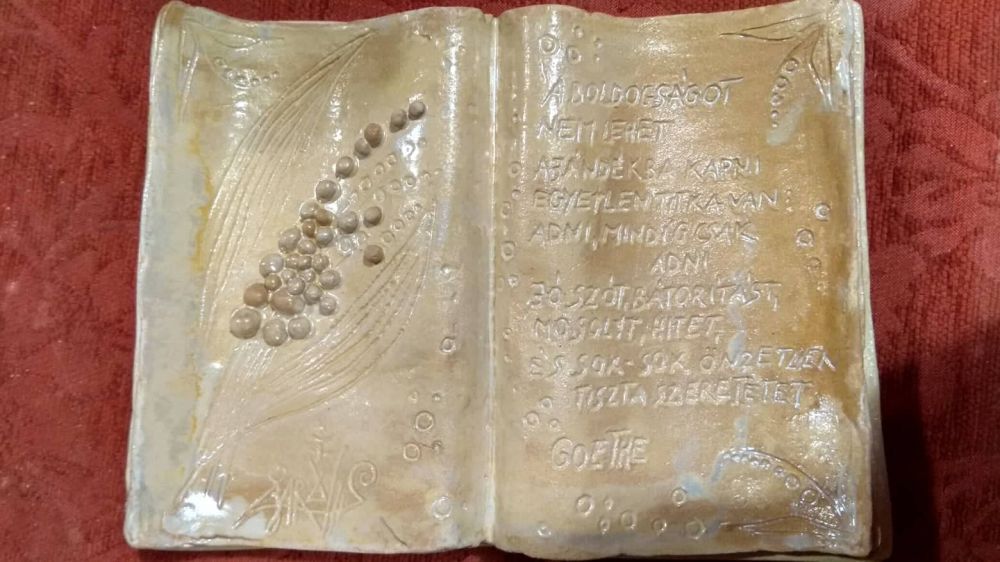 A BOLDOGSÁGOT
NEM LEHET
AJÁNDÉKBA KAPNI
EGYETLEN TITKA VAN:
ADNI, MINDIG CSAK
ADNI
JÓ SZÓT, BÁTORÍTÁST,
MOSOLYT, HITET,
ÉS SOK-SOK ÖNZETLEN
TISZTA SZERETETET
GOETHE